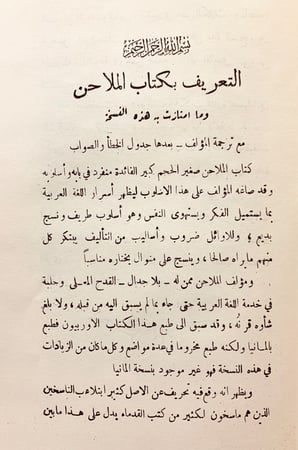 بسم الله الرحمن الرحيم
التعريف بكتاب الملاحن
وما امتازت به هذه النسخة
مع ترجمة المؤلف ــ بعدها جدول الخطأ والصواب
كتاب الملاحن صغير الحجم كبير الفائدة منفرد في بابه وأسلوبه
وقد صاغه المؤلف على هذا الاسلوب ليظهر أسرار اللغة العربية
بما يستميل الفكر ويستهوى النفس وهو أسلوب ظريف ونسج
بديع ؛ وللاوائل ضروب وأساليب من التأليف يبتكر كل
منهم ما يراه صالحا ، وينسج على منوال يختاره مناسباً
ومؤلف الملاحن ممن له ــ بلا جدال ــ القدح المعلى وحلبة
في خدمة اللغة العربية حتى جاء بما لم يسبق اليه من قبله ، ولا بلغ
شأوه قرنه ، وقد سبق الى طبع هذا الكتاب الاوربيون فطبع
بالمانيا ولكنه طبع مخروما في عدة مواضع وكل ما كان من الزيادات
في هذه النسخة فهو غير موجود بنسخة المانيا
ويظهر انه وقع فيه تحريف عن الاصل كثير ابتلاءب الناسخين
الذين هم ماسخون لكثير من كتب القدماء يدل على هذا ما بين